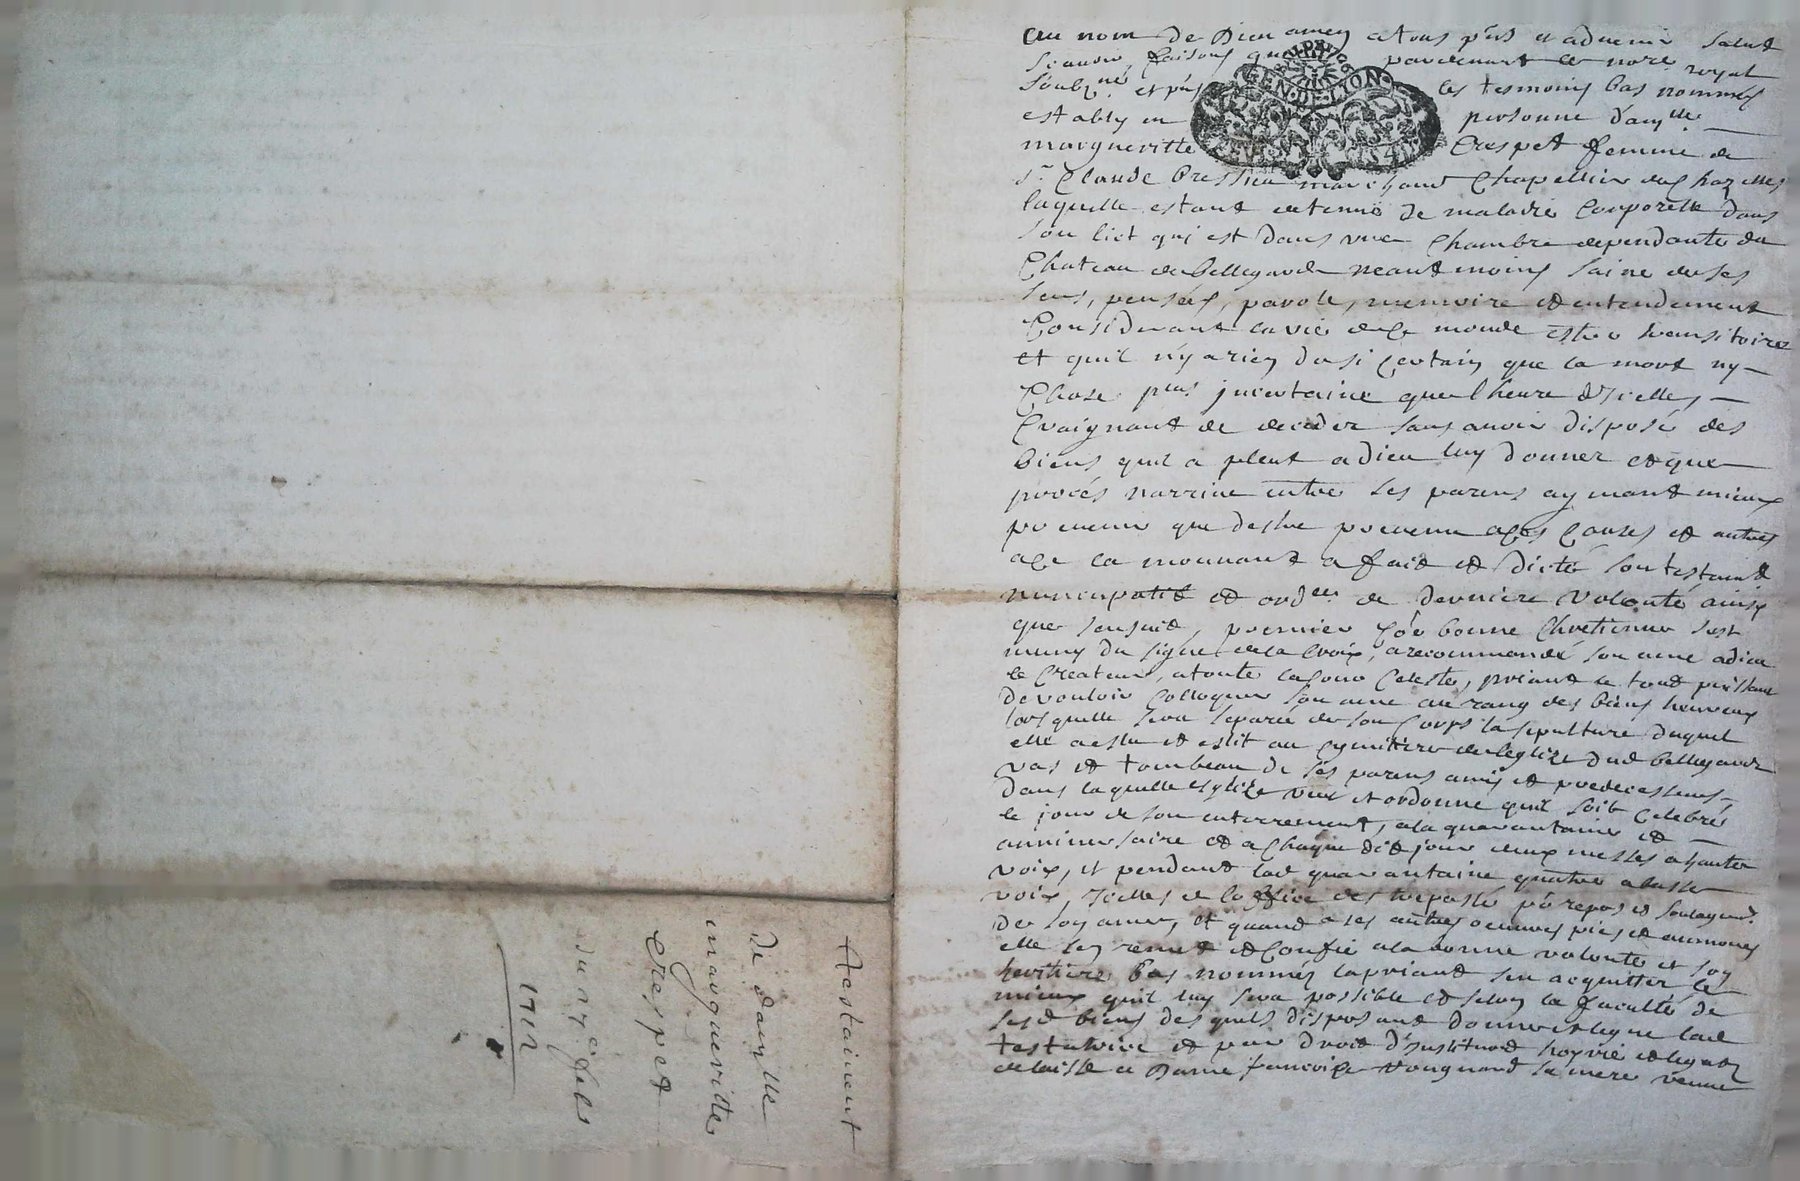 Au nom de Dieu amen a tous pñs et advenir salut
scauoir faisons que pardeuant le nore royal
soubzné et pñs les tesmoins bas nommés
estably en personne damlle
margueritte Crespet femme de
sr Claude Bressieu marchand Chapellier de Chazelles
laquelle estant detenue de maladie Corporelle dans
son lict qui est dans une Chambre dependante du
Chateau de bellegarde neantmoins saine de ses
sens, pensées, parole, memoire et entendement
Considerant la vie de Ce monde estre transitoire
et quil n'y a rien de si Certain que la mort ny
Chose plus jncertaine que l'heure d'Jcelle,
Craignant de deceder sans auoir disposé des
biens quil a pleut a dieu luy donner et que
procés narriue entre ses parens aymant mieux
preuenir que destre preuenue a Ces Causes et autres
a Ce la mouuant a fait et dicté son testamt
nuncupatif et ordce de derniere Volonté ainsy
que sensuit, premier Cõe bonne Chretienne sest
muny du signe de la Croix, a recommandé son ame a dieu
le Createur, a toute la Cour Celeste, priant le tout puissant
de vouloir Colloquer son ame au rang des biens heureux
lors quelle sera separée de son Corps la sepulture duquel
elle a eslu et eslit au Cymitiere de leglize dud bellegarde
vas et tombeau de ses parens amis et predecesseurs
dans laquelle esglize veut et ordonne quil soit Celebré
le jour de son enterrement, a la quarantaine et
anniuersaire et a Chaque dit jour deux messes a haute
voix, et pendant lad quarantaine quatre a basse
voix, Jcelles de loffice des trepassés pr repos et soulagemt
de son ame, et quand a ses autres oeuures pies et aumones
elle les remet et Confie a la bonne volonté de son
heritiere bas nommée la priant sen acquitter le
mieux quil luy sera possible et selon la faculté de
sesd biens des quels disposant donne et legue lad
testatrice et par droit d'Jnstitution hoyrie et legat
delaisse a Dame francoise Vougnard sa mere veuue
testament
de damlle
margueritte
Crespet
du 27e febr
1712
GEN·DE·LYON